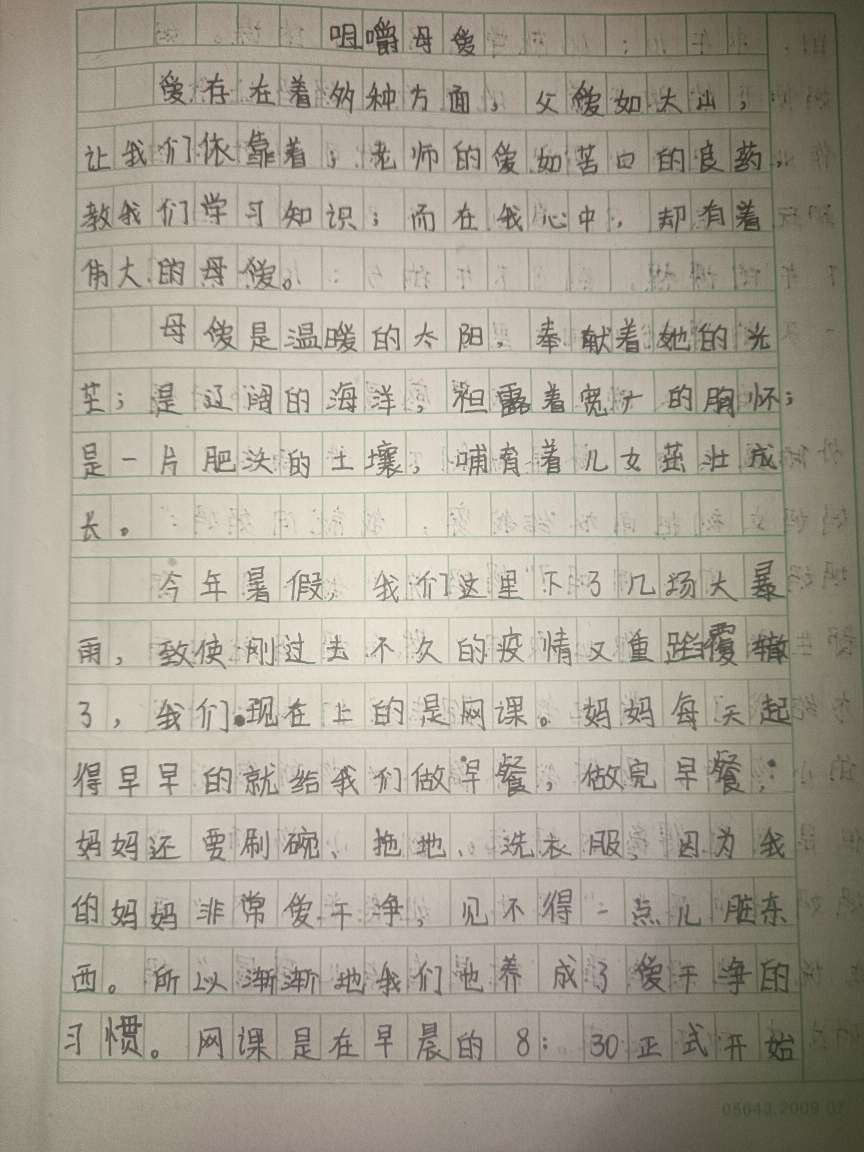 咀嚼母爱
爱存在着多种方面，父爱如大山，
让我们依靠着；老师的爱如苦口的良药，
教我们学习知识；而在我心中，却有着
伟大的母爱。
母爱是温暖的太阳，奉献着她的光
芒；是辽阔的海洋，袒露着宽广的胸怀；
是一片肥沃的土壤，哺育着儿女茁壮成
长。
今年暑假，我们这里下了几场大暴
雨，致使刚过去不久的疫情又重蹈覆辙
了，我们现在上的是网课。妈妈每天起
得早早的就给我们做早餐，做完早餐，
妈妈还要刷碗、拖地、洗衣服，因为我
的妈妈非常爱干净，见不得一点儿脏东
西。所以渐渐地我们也养成了爱干净的
习惯。网课是在早晨的8：30正式开始
05643.2009.07